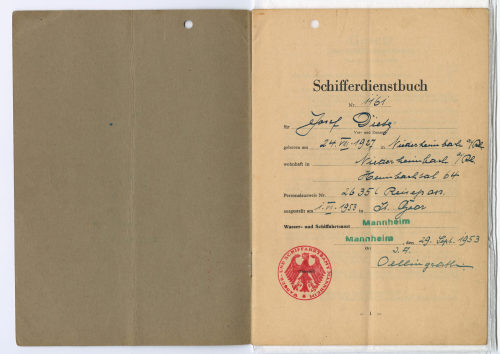 Schifferdienstbuch
Nr. 1161
für Josef Dietz
Vor- und Zuname
geboren am 24. VII. 1927 in Niederheimbach a/Rh.
wohnhaft in Niederheimbach a/Rh.
Heimbachtal 64
Personalausweis Nr. 2635 Reisepass
ausgestellt am 1. VI. 1953 in St. Goar
Wasser- und Schiffahrtsamt Mannheim
Mannheim, den 29. Sept. 1953
Ort
I. A.
WASSER- UND SCHIFFAHRTSAMT MANNHEIM
— 1 —